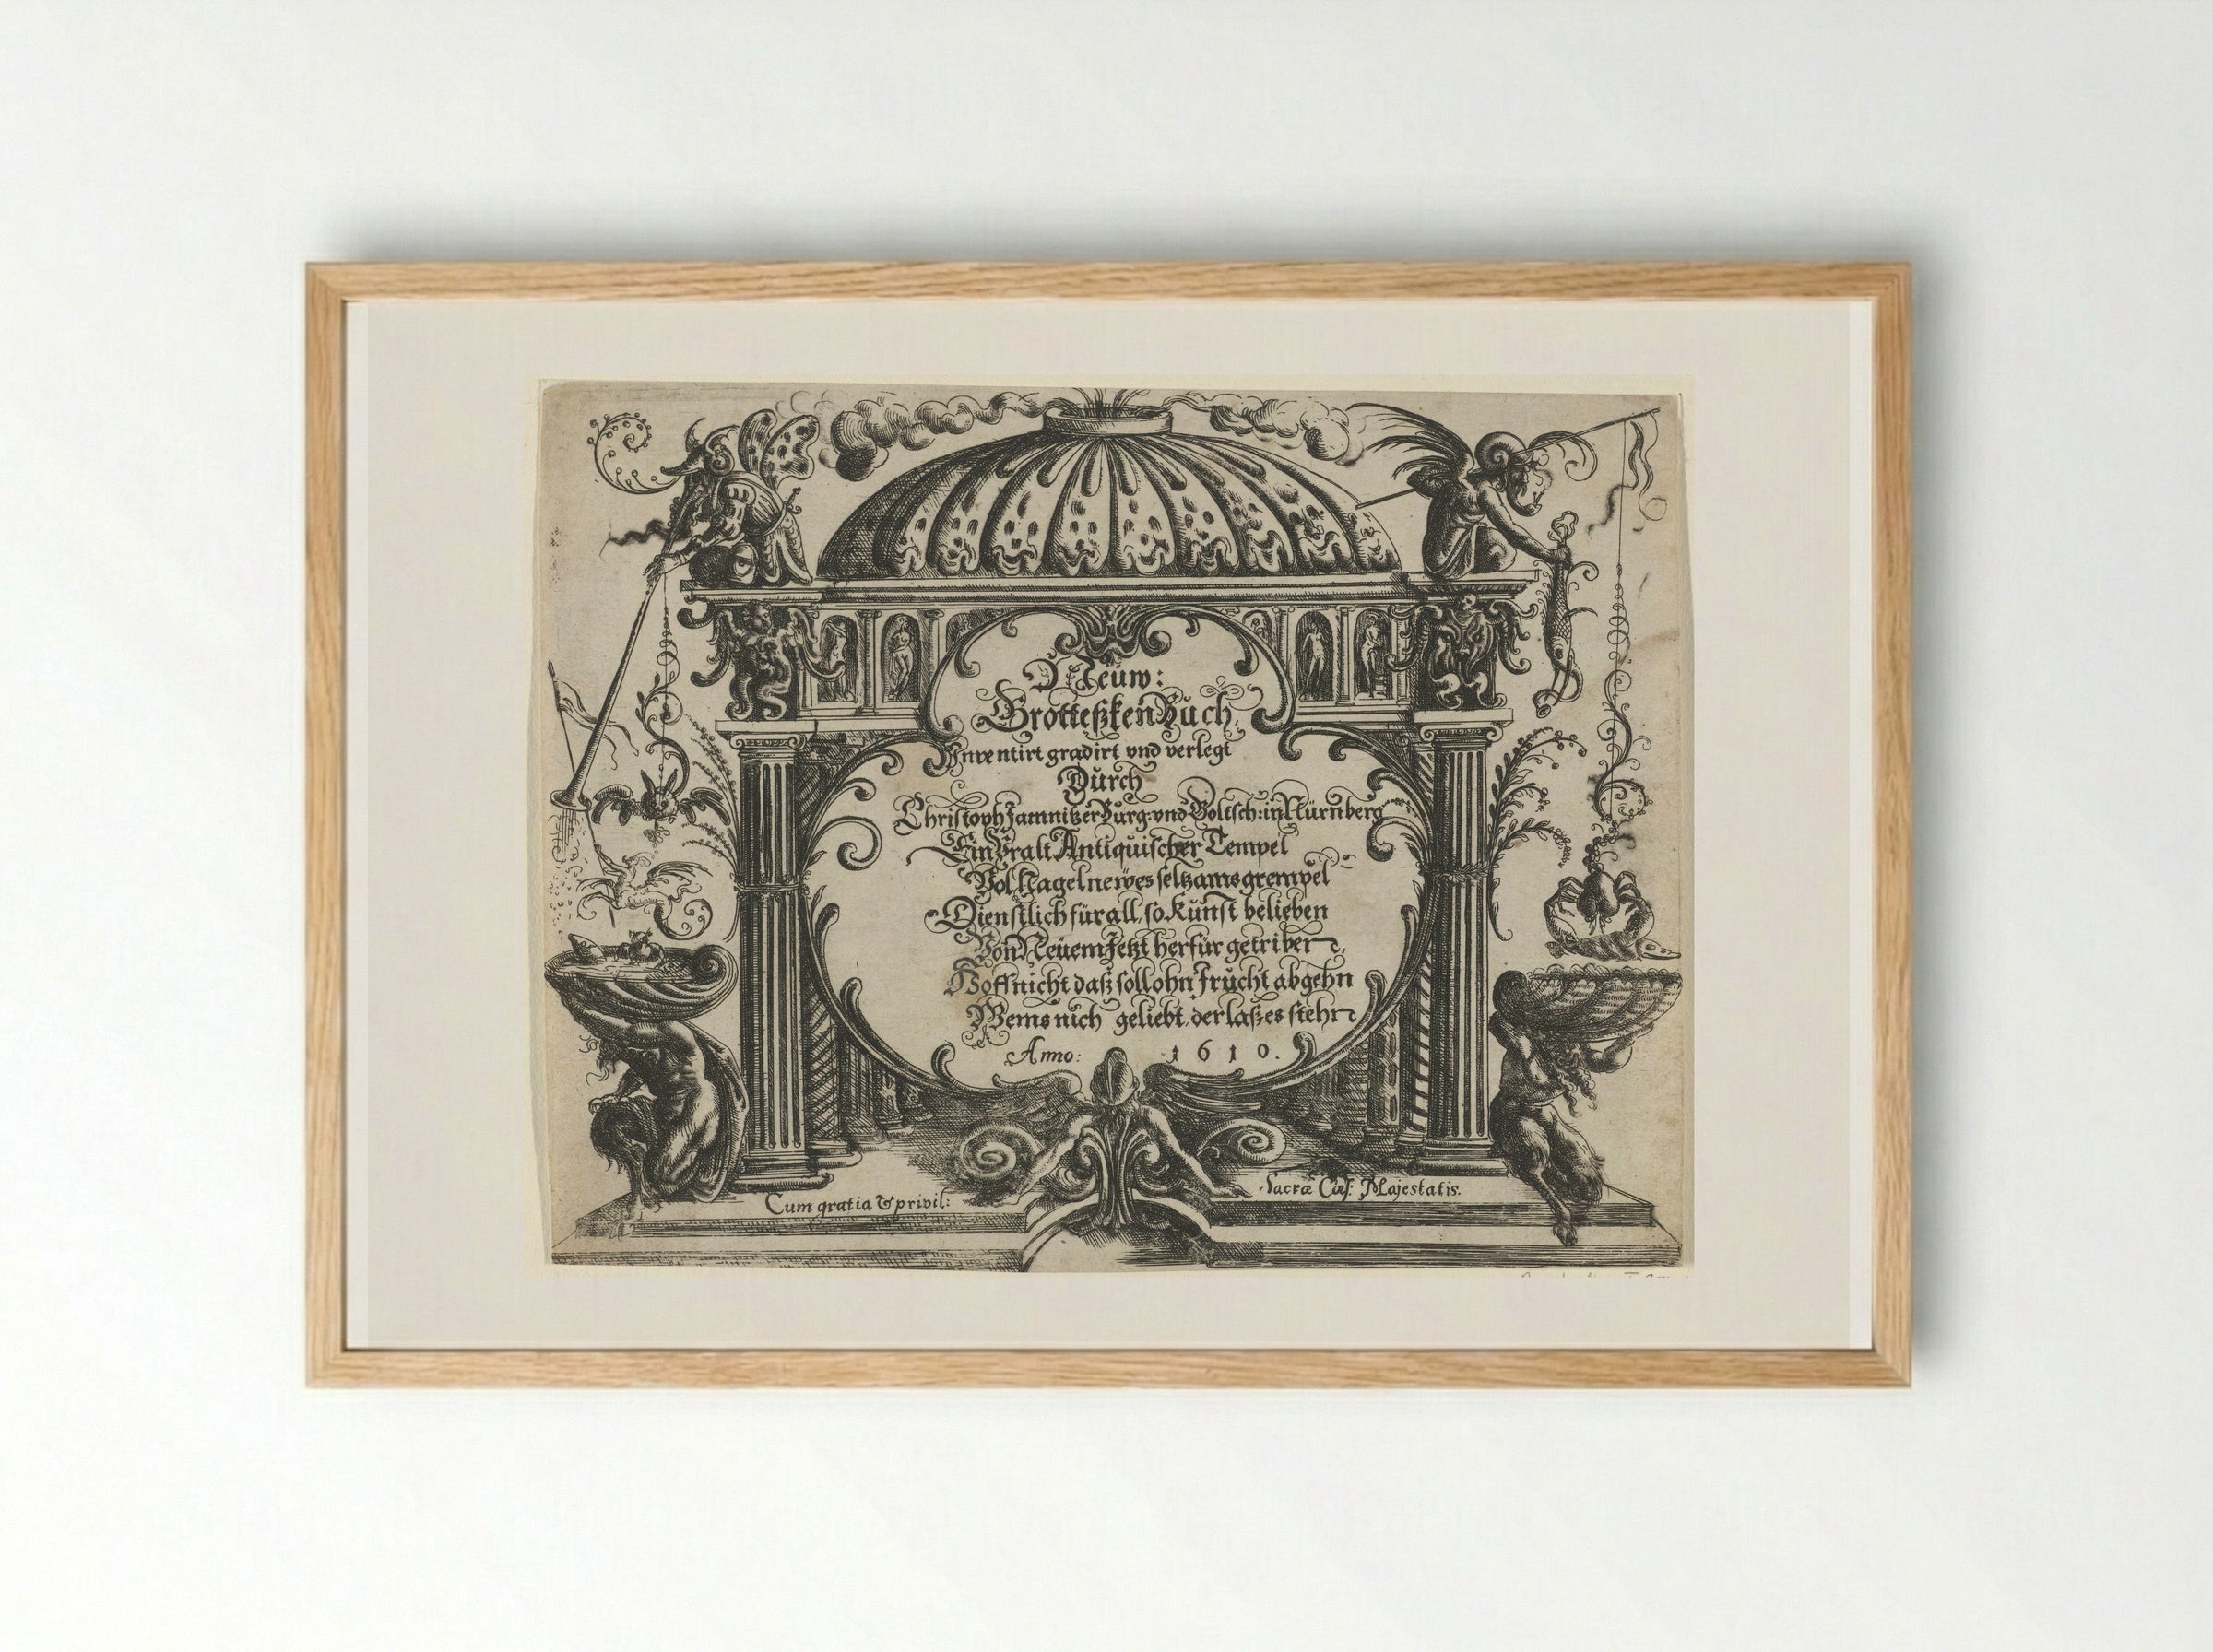 Neuw:
Grotteßken Buch.
Inventirt gradirt vnd verlegt
Durch
Christoph Jamnitzer Burg: vnd Goltsch: in Nürnberg
Ein Vralt Antiquischer Tempel
Vol Nagelnewes seltzams grempel
Dienstlich für all, so Kunst belieben
Von Neuem Jetzt herfür getriben
Hoff nicht daß soll ohn Frucht abgehn
Wems nich geliebt, der laß es stehn
Anno: 1610.
Cum gratia & privil: Sacræ Cæs: Majestatis.